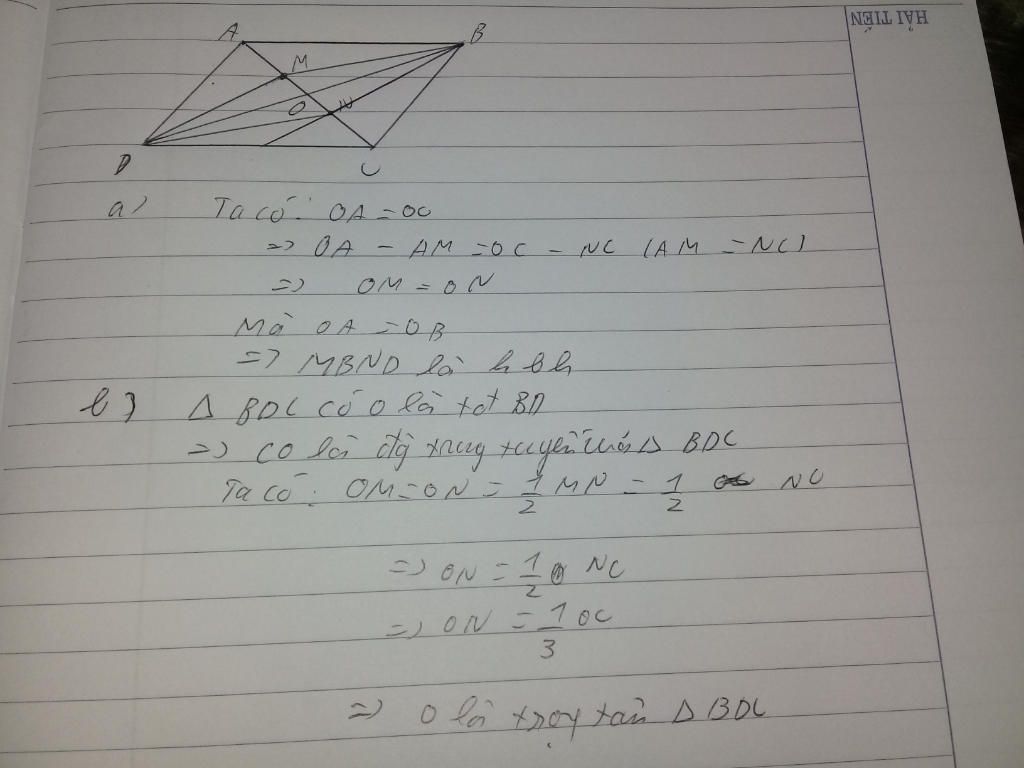 HẢI TIẾN
A B
M
O N
D C
a) Ta có: OA = OC
=> OA - AM = OC - NC (AM = NC)
=> OM = ON
Mà OA = OB
=> MBND là hbh
b) Δ BDC có O là tđ BD
=> CO là đg trung tuyến của Δ BDC
Ta có: OM = ON = 1/2 MN = 1/2 NC
=> ON = 1/2 NC
=> ON = 1/3 OC
=> O là trọg tâm Δ BDC